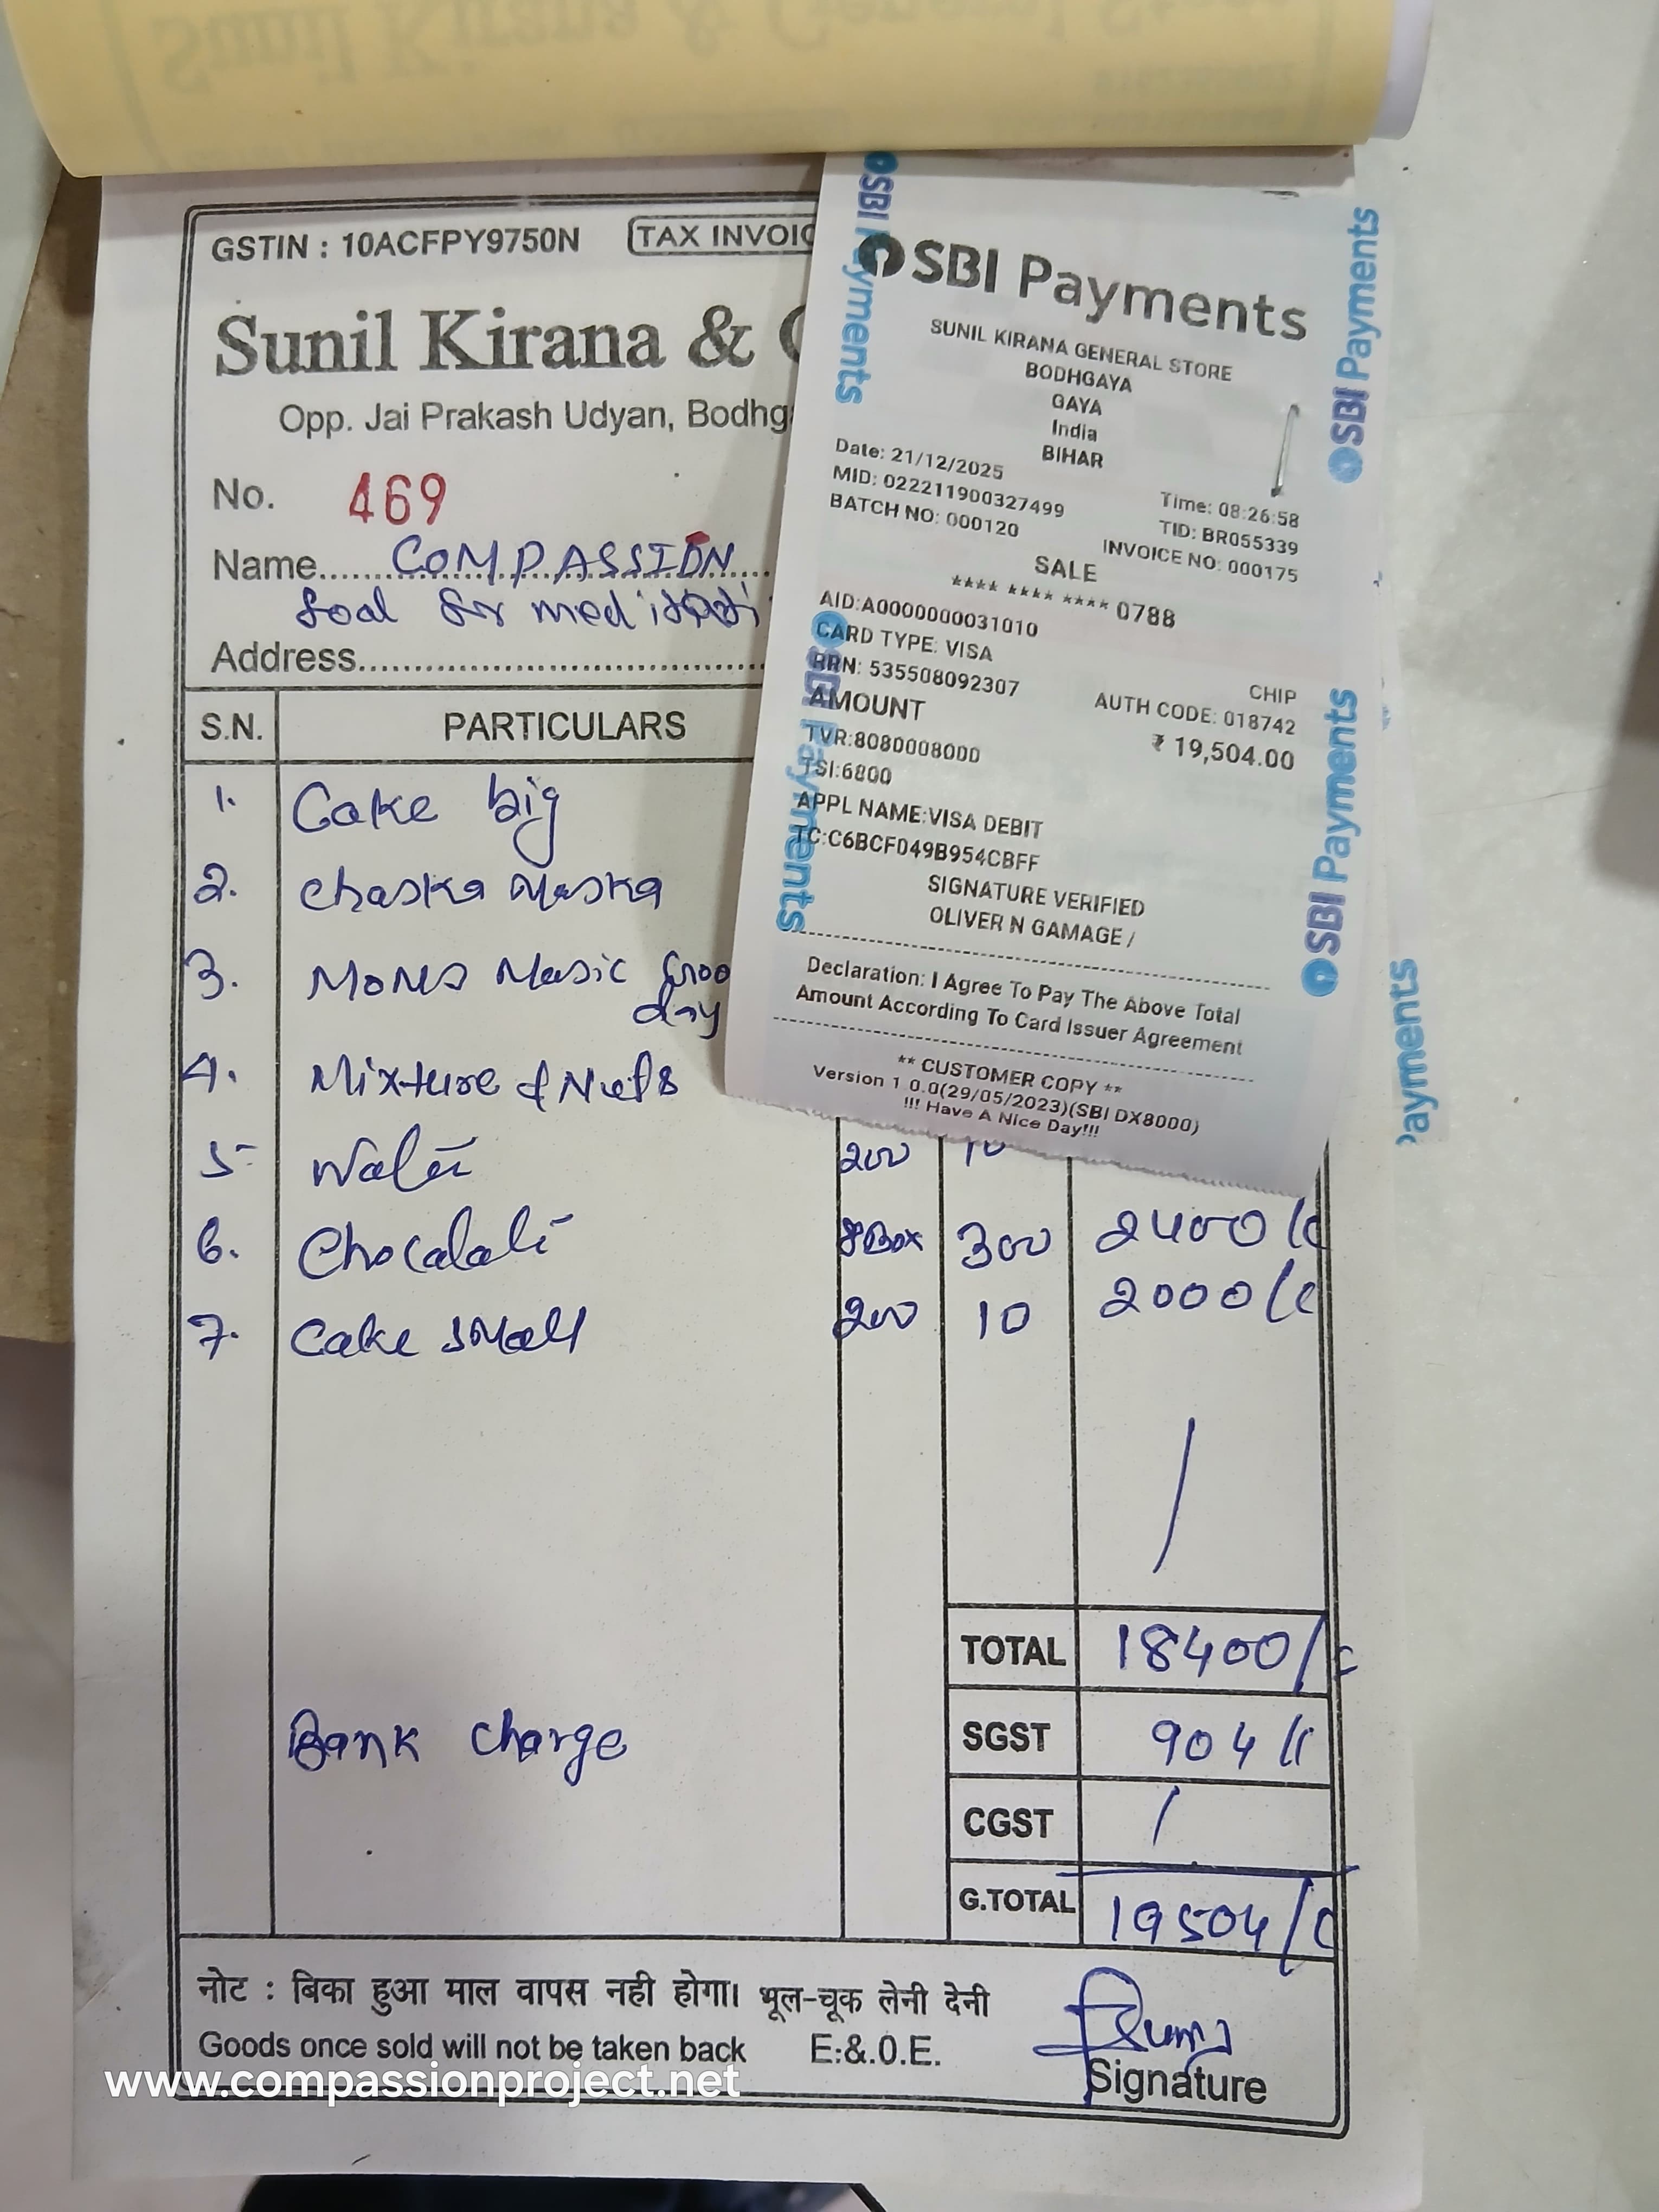 GSTIN : 10ACFPY9750N TAX INVOIC
Sunil Kirana &
Opp. Jai Prakash Udyan, Bodhg
No. 469
Name COMPASSION
foal for
Address
S.N. PARTICULARS
1. Cake big
2. Chaska Maska
3. MOMS Masic Goo
day
4. Mixture & Nuts
5 Water 200 10
6. Chocalate 8 Box 300 2400/
7. Cake small 200 10 2000/
TOTAL 18400/
Bank charge SGST 904/
CGST /
G.TOTAL 19504/
नोट : बिका हुआ माल वापस नही होगा। भूल-चूक लेनी देनी
Goods once sold will not be taken back E.&.O.E.
Signature
SBI Payments
SUNIL KIRANA GENERAL STORE
BODHGAYA
GAYA
India
BIHAR
Date: 21/12/2025 Time: 08:26:58
MID: 022211900327499 TID: BR055339
BATCH NO: 000120 INVOICE NO: 000175
SALE
**** **** **** 0788
AID:A0000000031010
CARD TYPE: VISA CHIP
RRN: 535508092307 AUTH CODE: 018742
AMOUNT ₹ 19,504.00
TVR:8080008000
TSI:6800
APPL NAME:VISA DEBIT
TC:C6BCF049B954CBFF
SIGNATURE VERIFIED
OLIVER N GAMAGE /
Declaration: I Agree To Pay The Above Total
Amount According To Card Issuer Agreement
** CUSTOMER COPY **
Version 1.0.0(29/05/2023)(SBI DX8000)
!!! Have A Nice Day!!!
SBI Payments
SBI Payments
SBI Payments
SBI Payments
ayments
www.compassionproject.net